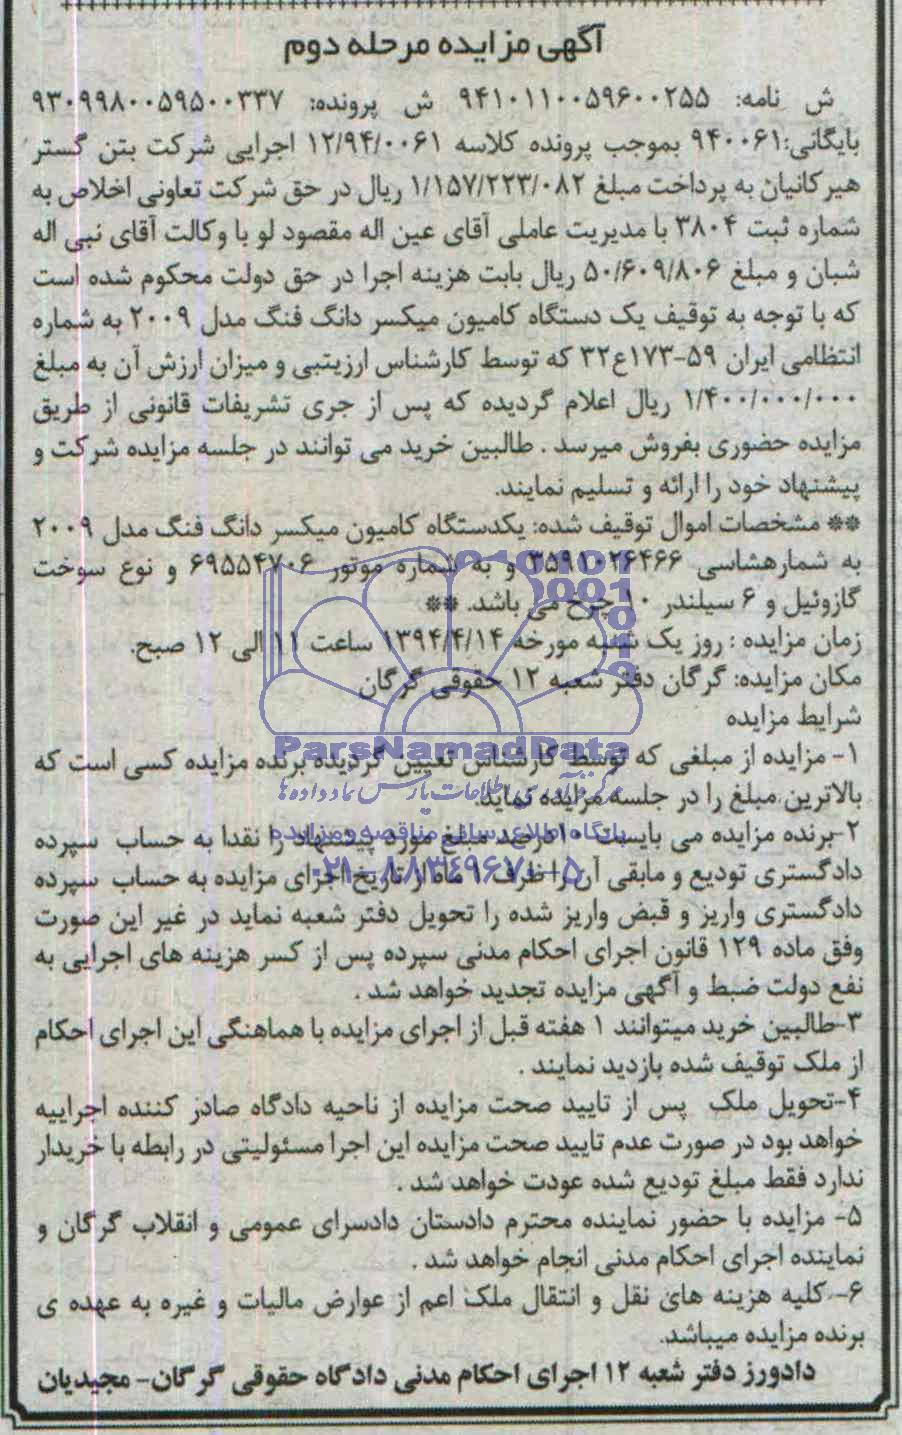 آگهی مزایده مرحله دوم
ش نامه: ۹۴۱۰۱۱۰۰۵۹۶۰۰۲۵۵ ش پرونده: ۹۳۰۹۹۸۰۰۵۹۵۰۰۳۳۷
بایگانی:۹۴۰۰۶۱ بموجب پرونده کلاسه ۱۲/۹۴/۰۰۶۱ اجرایی شرکت بتن گستر
هیرکانیان به پرداخت مبلغ ۱/۱۵۷/۲۲۳/۰۸۲ ریال در حق شرکت تعاونی اخلاص به
شماره ثبت ۳۸۰۴ با مدیریت عاملی آقای عین اله مقصود لو با وکالت آقای نبی اله
شبان و مبلغ ۵۰/۶۰۹/۸۰۶ ریال بابت هزینه اجرا در حق دولت محکوم شده است
که با توجه به توقیف یک دستگاه کامیون میکسر دانگ فنگ مدل ۲۰۰۹ به شماره
انتظامی ایران ۵۹-۱۷۳ع۳۲ که توسط کارشناس ارزیتبی و میزان ارزش آن به مبلغ
۱/۴۰۰/۰۰۰/۰۰۰ ریال اعلام گردیده که پس از جری تشریفات قانونی از طریق
مزایده حضوری بفروش میرسد . طالبین خرید می توانند در جلسه مزایده شرکت و
پیشنهاد خود را ارائه و تسلیم نمایند.
** مشخصات اموال توقیف شده: یکدستگاه کامیون میکسر دانگ فنگ مدل ۲۰۰۹
به شمارهشاسی ۳۵۹۱۰۲۶۴۶۶ و به شماره موتور ۶۹۵۵۴۷۰۶ و نوع سوخت
گازوئیل و ۶ سیلندر ۱۰ چرخ می باشد. **
زمان مزایده : روز یک شنبه مورخه ۱۳۹۴/۴/۱۴ ساعت ۱۱ الی ۱۲ صبح.
مکان مزایده: گرگان دفتر شعبه ۱۲ حقوقی گرگان
شرایط مزایده
ParsNamadData
۱- مزایده از مبلغی که توسط کارشناس تعیین گردیده برنده مزایده کسی است که
مرکز فرآوری اطلاعات پارس نماد داده ها
بالاترین مبلغ را در جلسه مزایده نماید.
پایگاه اطلاع رسانی مناقصه و مزایده
۲-برنده مزایده می بایست ۱۰درصد مبلغ مورد پیشنهاد را نقدا به حساب سپرده
۰۲۱-۸۸۳۴۹۶۷۰-۵
دادگستری تودیع و مابقی آن را ظرف ۱ ماه از تاریخ اجرای مزایده به حساب سپرده
دادگستری واریز و قبض واریز شده را تحویل دفتر شعبه نماید در غیر این صورت
وفق ماده ۱۲۹ قانون اجرای احکام مدنی سپرده پس از کسر هزینه های اجرایی به
نفع دولت ضبط و آگهی مزایده تجدید خواهد شد .
۳-طالبین خرید میتوانند ۱ هفته قبل از اجرای مزایده با هماهنگی این اجرای احکام
از ملک توقیف شده بازدید نمایند .
۴-تحویل ملک پس از تایید صحت مزایده از ناحیه دادگاه صادر کننده اجراییه
خواهد بود در صورت عدم تایید صحت مزایده این اجرا مسئولیتی در رابطه با خریدار
ندارد فقط مبلغ تودیع شده عودت خواهد شد .
۵- مزایده با حضور نماینده محترم دادستان دادسرای عمومی و انقلاب گرگان و
نماینده اجرای احکام مدنی انجام خواهد شد .
۶- کلیه هزینه های نقل و انتقال ملک اعم از عوارض مالیات و غیره به عهده ی
برنده مزایده میباشد.
دادورز دفتر شعبه ۱۲ اجرای احکام مدنی دادگاه حقوقی گرگان- مجیدیان